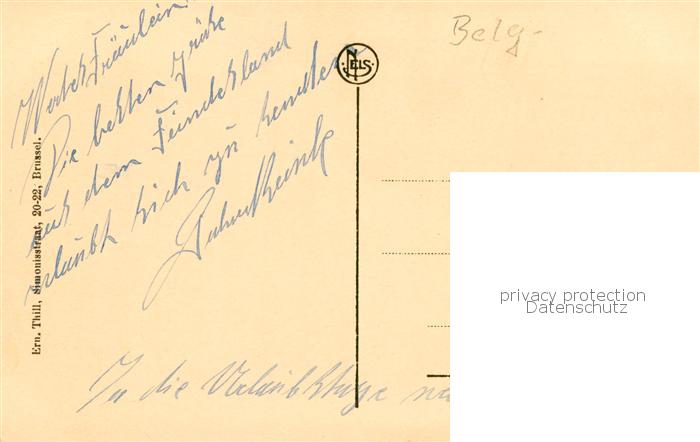 Wertes Fräulein!
Die besten Grüße
aus dem Feindesland
erlaubt sich zu senden
Belg-
NELS
Ern. Thill, Simonisstraat, 20-22, Brussel.
privacy protection
Datenschutz
In die Urlaubstage